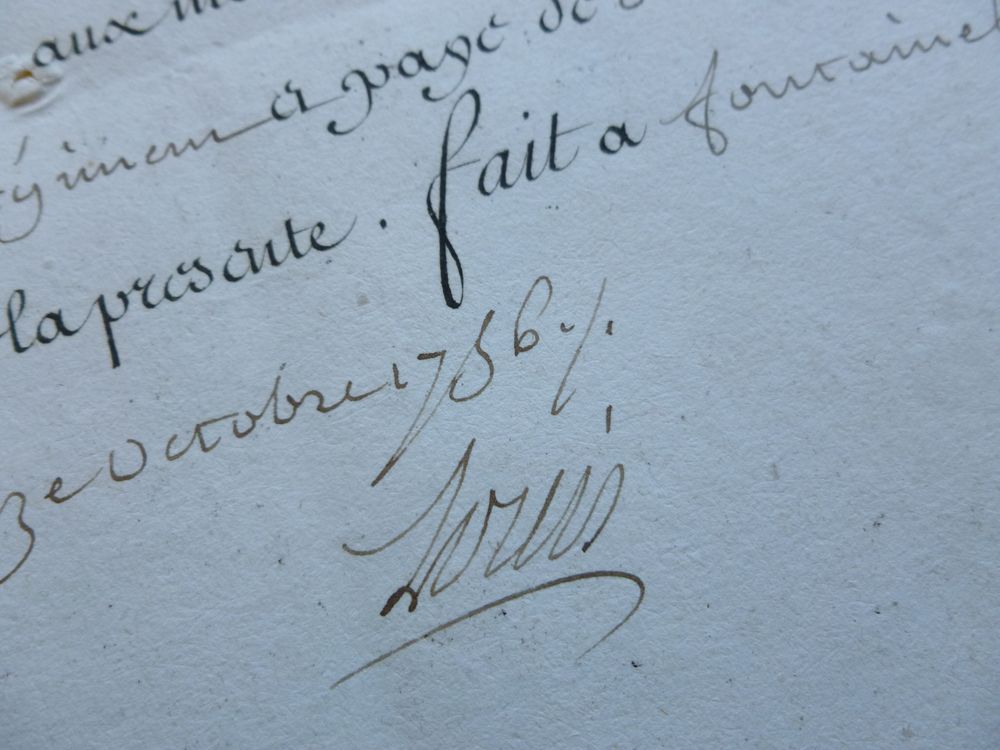 aux
régiment a payé de
la presente. fait a fontainebl
3e octobre 1756 ./.
Louis